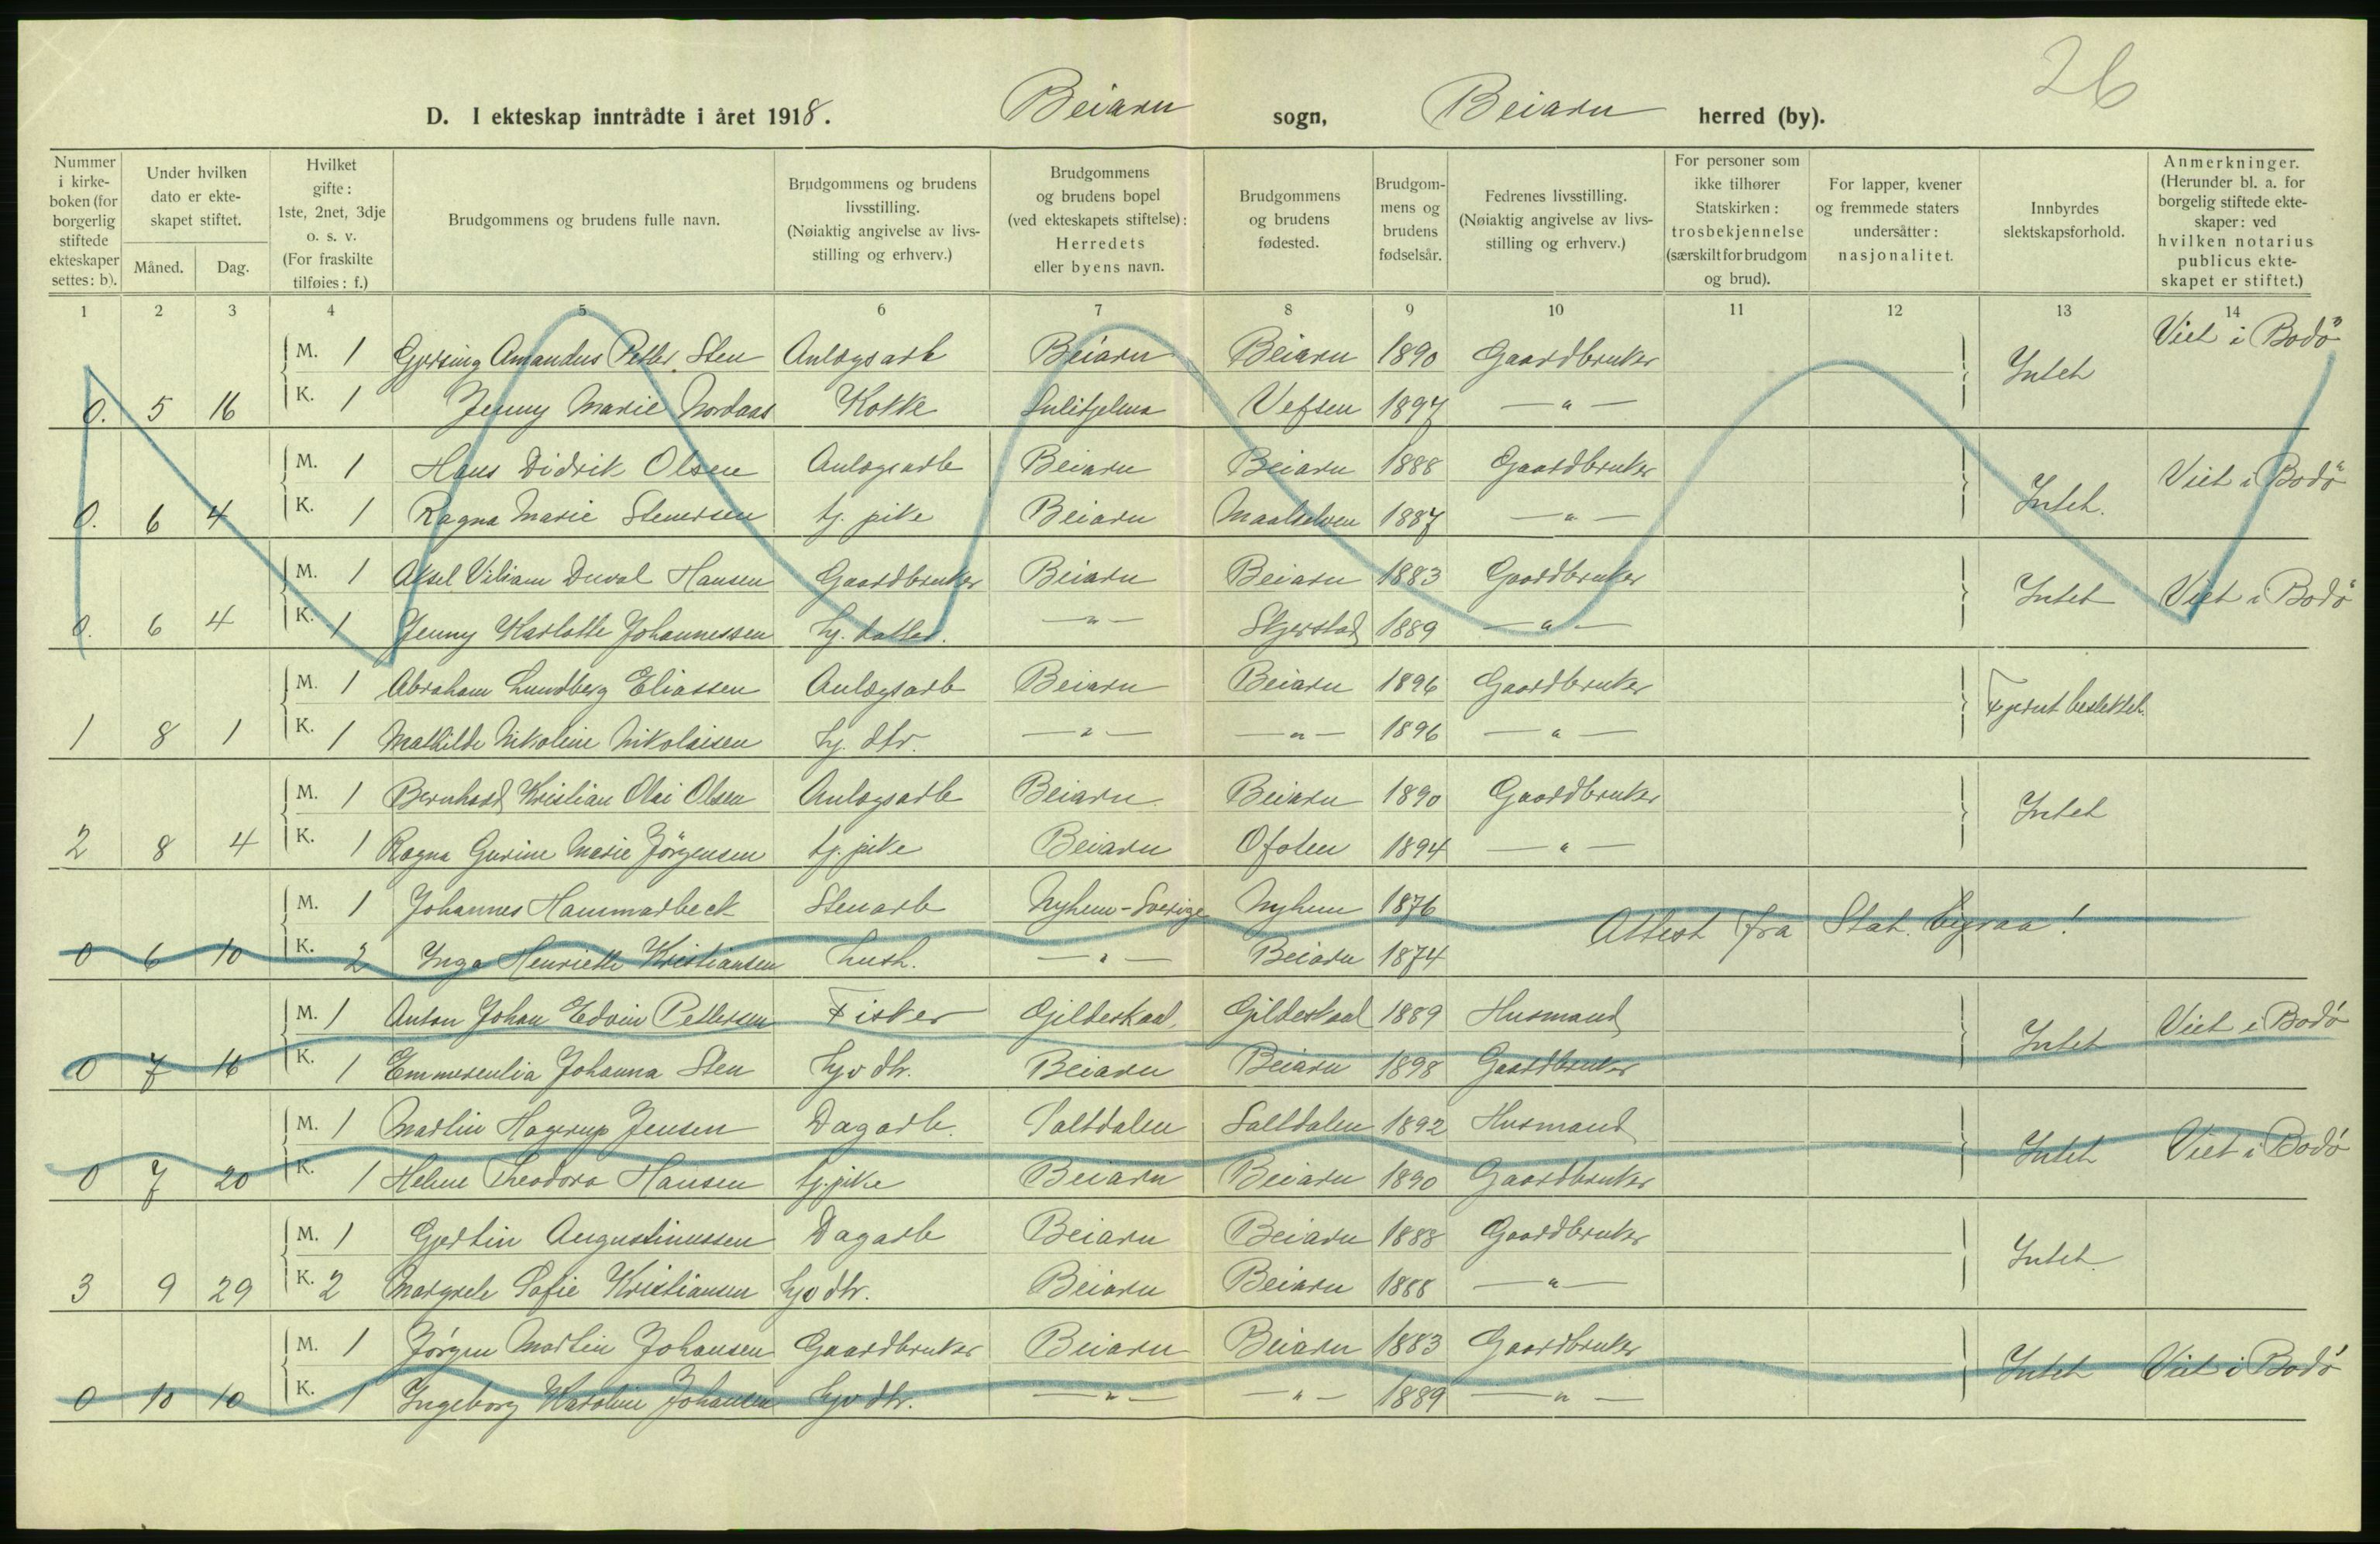 26
D. I ekteskap inntrådte i året 1918. Beiarn sogn, Beiarn herred (by).
Nummer i kirkeboken (for borgerlig stiftede ekteskaper settes: b). | Under hvilken dato er ekteskapet stiftet. Måned. Dag. | Hvilket gifte: 1ste, 2net, 3dje o. s. v. (For fraskilte tilføies: f.) | Brudgommens og brudens fulle navn. | Brudgommens og brudens livsstilling. (Nøiaktig angivelse av livsstilling og erhverv.) | Brudgommens og brudens bopel (ved ekteskapets stiftelse): Herredets eller byens navn. | Brudgommens og brudens fødested. | Brudgommens og brudens fødselsår. | Fedrenes livsstilling. (Nøiaktig angivelse av livsstilling og erhverv.) | For personer som ikke tilhører Statskirken: trosbekjennelse (særskilt for brudgom og brud). | For lapper, kvener og fremmede staters undersåtter: nasjonalitet. | Innbyrdes slektskapsforhold. | Anmerkninger. (Herunder bl. a. for borgelig stiftede ekteskaper: ved hvilken notarius publicus ekteskapet er stiftet.)
1 2 3 4 5 6 7 8 9 10 11 12 13 14
M. 1 Gjersing Amandus Petter Sten Anlægsarb Beiarn Beiarn 1890 Gaardbruker Intet Viet i Bodö
0. 5 16 K. 1 Jenny Marie Nordaas Kokke Sulitjelma Vefsen 1897 — " —
M. 1 Hans Didrik Olsen Anlægsarb Beiarn Beiarn 1888 Gaardbruker Intet. Viet i Bodö
0. 6 4 K. 1 Ragna Marie Stenersen tj. pike Beiarn Maalselven 1887 — " —
M. 1 Aksel Viliam Duval Hansen Gaardbruker Beiarn Beiarn 1883 Gaardbruker Intet Viet i Bodö
0. 6 4 K. 1 Jenny Karlotte Johannessen hj. datter. — " — Skjerstad 1889 — " —
M. 1 Abraham Lundberg Eliassen Anlægsarb Beiarn Beiarn 1896 Gaardbruker Fjernt beslektet.
1 8 1 K. 1 Mathilde Nikoline Nikolaisen hj. dtr. — " — — " — 1896 — " —
M. 1 Bernhard Kristian Olai Olsen Anlægsarb Beiarn Beiarn 1890 Gaardbruker Intet
2 8 4 K. 1 Ragna Gurine Marie Jörgensen tj. pike Beiarn Ofoten 1894 — " —
M. 1 Johannes Hammarbeck Stenarb Nyhem-Sverige Nyhem 1876 Attest fra Stat. byraa!
0 6 10 K. 2 Inga Henriette Kristiansen hush. — " — Beiarn 1874
M. 1 Anton Johan Edvin Pettersen Fisker Gildeskaal. Gildeskaal 1889 Husmand Intet Viet i Bodö
0 7 16 K. 1 Emmerentia Johanna Sten hjv dtr. Beiarn Beiarn 1898 Gaardbruker
M. 1 Martin Hagerup Jensen Dagarb. Saltdalen Saltdalen 1892 Husmand Intet Viet i Bodö
0 7 20 K. 1 Helene Theodora Hansen tj. pike Beiarn Beiarn 1890 Gaardbruker
M. 1 Gjertin Augustinussen Dagarb Beiarn Beiarn 1888 Gaardbruker Intet.
3 9 29 K. 2 Margrete Sofie Kristiansen hjv dtr. Beiarn Beiarn 1888 — " —
M. 1 Jörgen Martin Johansen Gaardbruker Beiarn Beiarn 1883 Gaardbruker Intet Viet i Bodö
0 10 10 K. 1 Ingeborg Karoline Johansen hjv dtr. — " — — " — 1889 — " —